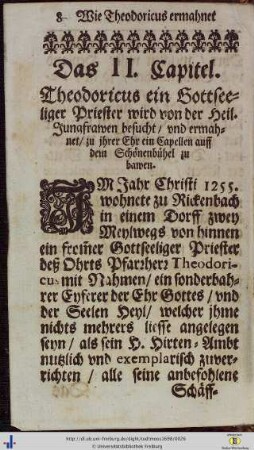 8 Wie Theodoricus ermahnet
Das II. Capitel.
Theodoricus ein Gottsee-
liger Priester wird von der Heil.
Jungfrawen besucht / vnd ermah-
net / zu jhrer Ehr ein Capellen auff
dem Schönenbühel zu
bawen.
IM Jahr Christi 1255.
wohnete zu Rickenbach
in einem Dorff zwey
Meylwegs von hinnen
ein fromer Gottseeliger Priester
deß Ohrts Pfarrherr Theodori-
cus mit Nahmen / ein sonderbah-
rer Eyferer der Ehr Gottes / vnd
der Seelen Heyl / welcher jhme
nichts mehrers liesse angelegen
seyn / als sein H. Hirten-Ambt
nutzlich vnd exemplarisch zuver-
richten / alle seine anbefohlene
Schäff-
© Universitätsbibliothek Freiburg